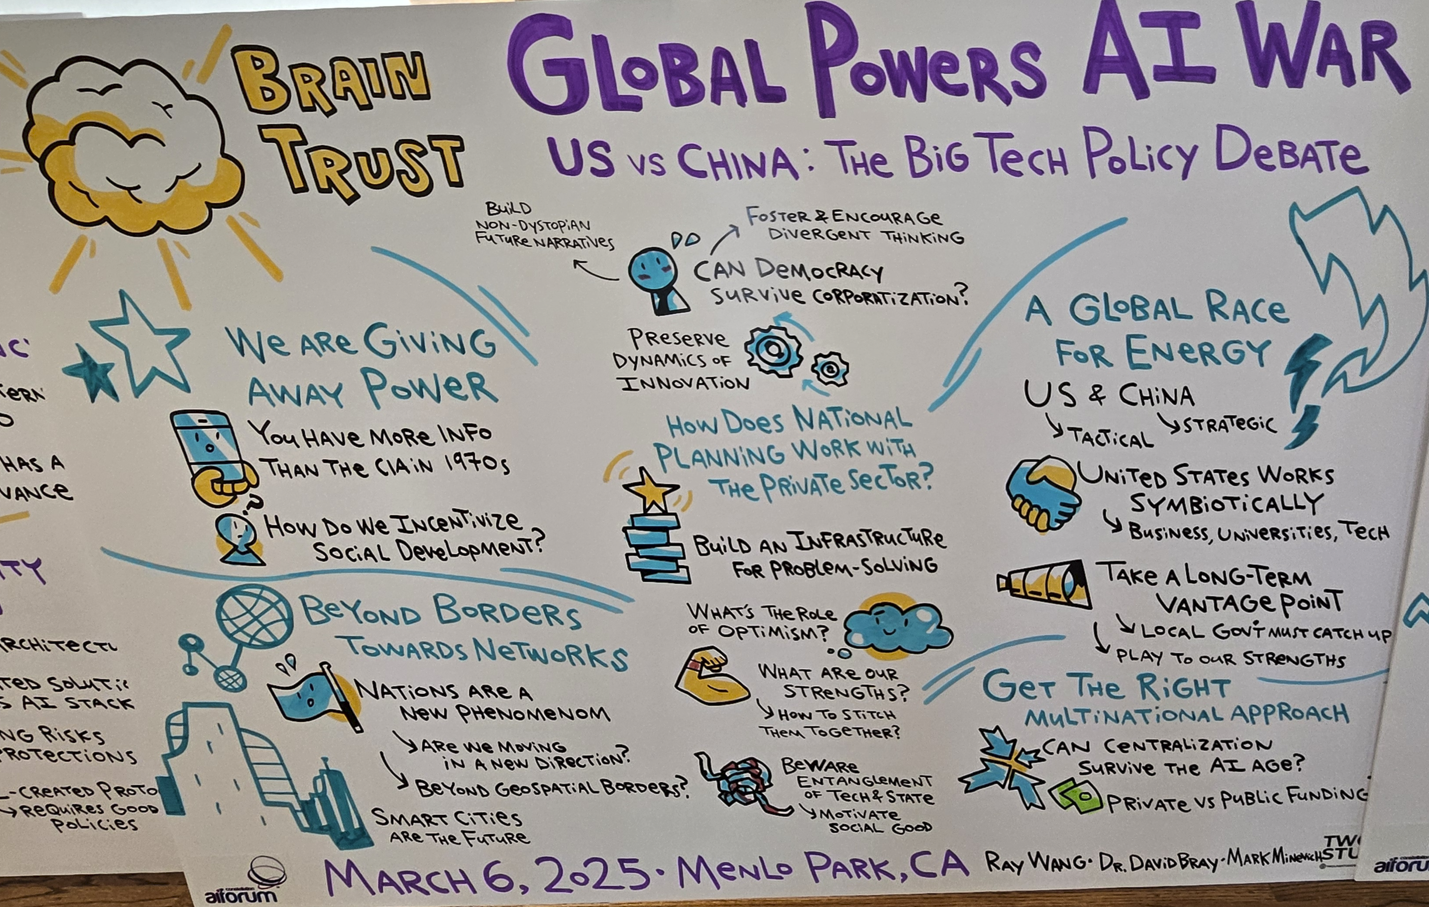 BRAIN
TRUST
GLOBAL POWERS AI WAR
US VS CHINA: THE BIG TECH POLICY DEBATE
BUILD
NON-DYSTOPIAN
FUTURE NARRATIVES
FOSTER & ENCOURAGE
DIVERGENT THINKING
CAN DEMOCRACY
SURVIVE CORPORATIZATION?
PRESERVE
DYNAMICS OF
INNOVATION
WE ARE GIVING
AWAY POWER
YOU HAVE MORE INFO
THAN THE CIA IN 1970s
HOW DO WE INCENTIVIZE
SOCIAL DEVELOPMENT?
BEYOND BORDERS
TOWARDS NETWORKS
NATIONS ARE A
NEW PHENOMENOM
ARE WE MOVING
IN A NEW DIRECTION?
BEYOND GEOSPATIAL BORDERS?
SMART CITIES
ARE THE FUTURE
HOW DOES NATIONAL
PLANNING WORK WITH
THE PRIVATE SECTOR?
BUILD AN INFRASTRUCTURE
FOR PROBLEM-SOLVING
WHAT'S THE ROLE
OF OPTIMISM?
WHAT ARE OUR
STRENGTHS?
HOW TO STITCH
THEM TOGETHER?
BEWARE
ENTANGLEMENT
OF TECH & STATE
MOTIVATE
SOCIAL GOOD
A GLOBAL RACE
FOR ENERGY
US & CHINA
TACTICAL
STRATEGIC
UNITED STATES WORKS
SYMBIOTICALLY
BUSINESS, UNIVERSITIES, TECH
TAKE A LONG-TERM
VANTAGE POINT
LOCAL GOV'T MUST CATCH UP
PLAY TO OUR STRENGTHS
GET THE RIGHT
MULTINATIONAL APPROACH
CAN CENTRALIZATION
SURVIVE THE AI AGE?
PRIVATE VS PUBLIC FUNDING
MARCH 6, 2025 · MENLO PARK, CA
RAY WANG · DR. DAVID BRAY · MARK MINEVICH
aiforum
HAS A
VANCE
AI STACK
NG RISKS
ROTECTIONS
-CREATED PROTO
REQUIRES GOOD
POLICIES